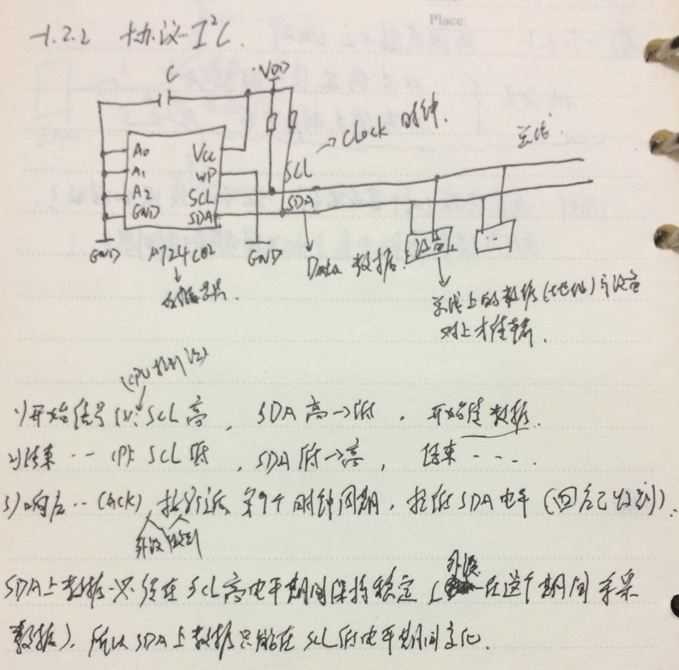 Place
-1.2.2 协议-I²C.
C
VDD
A0
A1
A2
GND
Vcc
WP
SCL
SDA
GND
GND
SCL
SDA
→clock 时钟.
总线
Data 数据.
设备
总线上的数据(地址)与设备
对上才传输.
(CPU控制)
1)开始信号 SCL 高, SDA 高→低, 开始传数据.
2)结束 ‥ (P): SCL 低, SDA 低→高, 结束 - - - -.
3)响应 ‥ (ack), 第9个时钟周期, 拉低SDA电平(回应已收到).
外设 收到
SDA上数据只能在SCL高电平期间保持稳定(外设在这个期间采
数据), 所以SDA上数据只能在SCL低电平期间变化.